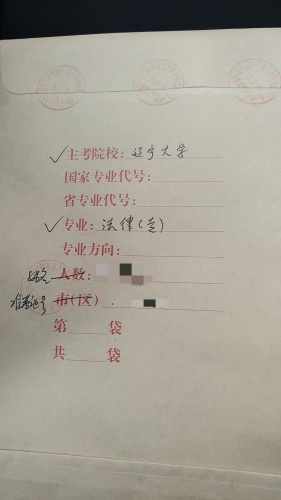 ✓主考院校：辽宁大学
国家专业代号：
省专业代号：
✓专业：法律（专）
专业方向：
姓名 人数：
准考证号 市（区）
第 袋
共 袋